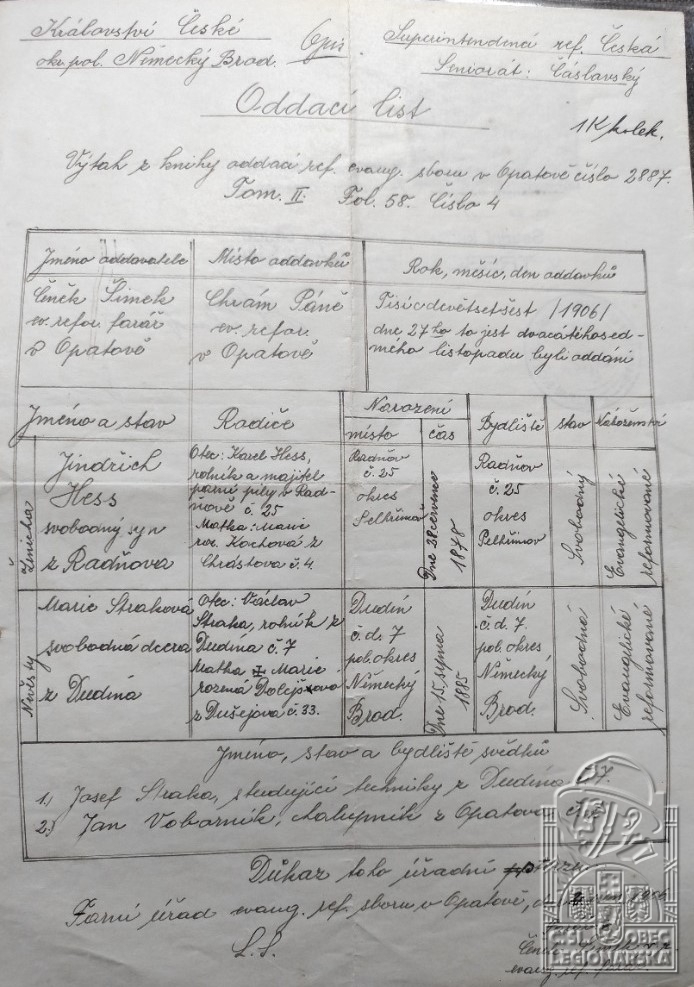 Království České
okr. pol. Německý Brod.
Opis
Superintendená ref. Česká
Seniorát: Čáslavský
Oddací list
1K kolek.
Výtah z knihy oddací ref. evang. sboru v Opatově číslo 2887.
Tom. II. Fol. 58. Číslo 4
Jméno oddavatele
Místo oddavků
Rok, měsíc, den oddavků
Čeněk Šimek
ev. refor. farář
v Opatově
Chrám Páně
ev. refor.
v Opatově
Tisícdevětsetšest /1906/
dne 27ho to jest dvacátéhosed-
mého listopadu byli oddáni
Jméno a stav
Rodiče
Narození
místo
čas
Bydliště
stav
Náboženství
Ženicha
Jindřich
Hess
svobodný syn
z Radňova
Otec: Karel Hess,
rolník a majitel
parní pily v Rad-
ňově č. 25
Matka: Marie
roz. Kochová z
Chrástova č. 4
Radňov
č. 25
okres
Pelhřimov
Dne 28 července
1878
Radňov
č. 25
okres
Pelhřimov
Svobodný
Evangelické
reformované
Nevěsty
Marie Straková
svobodná dcera
z Dudína
Otec: Václav
Straka, rolník z
Dudína č. 7
Matka Marie
rozená Dolejšová
z Dušejova č. 33.
Dudín
č. d. 7
pol. okres
Německý
Brod.
Dne 15. srpna
1885
Dudín
č. d. 7.
pol. okres
Německý
Brod.
Svobodná
Evangelické
reformované
Jméno, stav a bydliště svědků
1.) Josef Straka, studující techniky z Dudína č. 7.
2.) Jan Voborník, chalupník z Opatova
Důkaz toho úřadní
Farní úřad evang. ref. sboru v Opatově, 1906
L. S.
Čeněk
evang. ref. farář
ČS. OBEC
LEGIONÁŘSKÁ